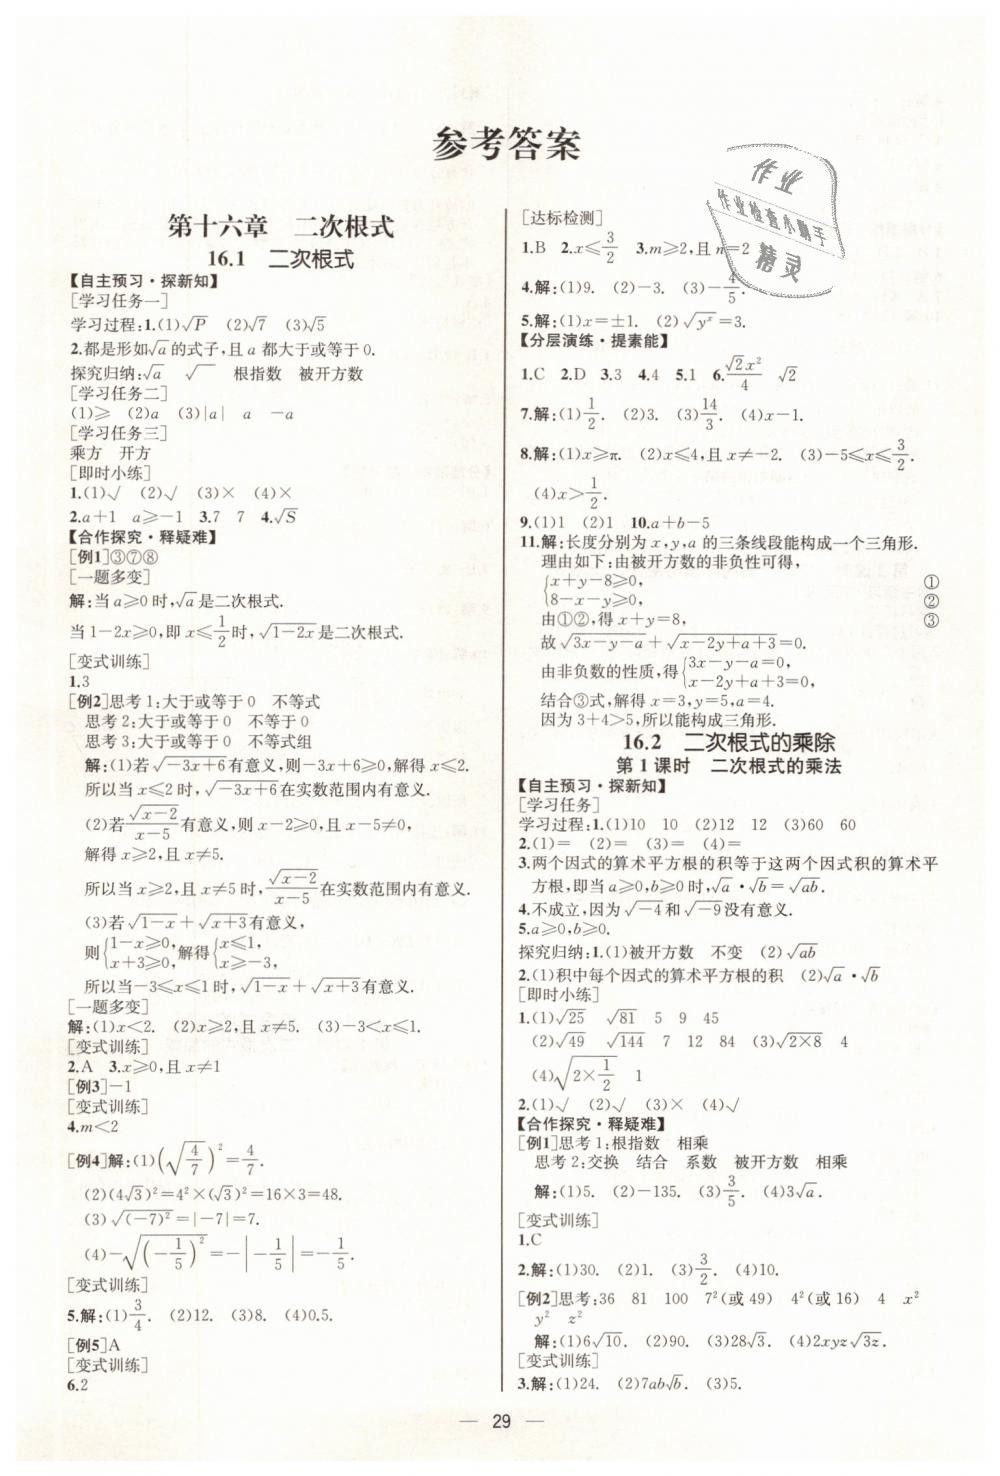 参考答案
作业
作业检查小助手
精灵
第十六章 二次根式
16.1 二次根式
【自主预习·探新知】
[学习任务一]
学习过程:1.(1)√P (2)√7 (3)√5
2.都是形如√a的式子,且 a 都大于或等于 0.
探究归纳:√a √ 根指数 被开方数
[学习任务二]
(1)⩾ (2)a (3)|a| a −a
[学习任务三]
乘方 开方
[即时小练]
1.(1)√ (2)√ (3)× (4)×
2.a+1 a⩾−1 3.7 7 4.√S
【合作探究·释疑难】
[例1]③⑦⑧
[一题多变]
解:当 a⩾0 时,√a是二次根式.
当 1−2x⩾0,即 x⩽1/2时,√(1−2x)是二次根式.
[变式训练]
1.3
[例2]思考 1:大于或等于 0 不等式
思考 2:大于或等于 0 不等于 0
思考 3:大于或等于 0 不等式组
解:(1)若√(−3x+6)有意义,则−3x+6⩾0,解得 x⩽2.
所以当 x⩽2 时,√(−3x+6)在实数范围内有意义.
(2)若√(x−2)/(x−5)有意义,则 x−2⩾0,且 x−5≠0,
解得 x⩾2,且 x≠5.
所以当 x⩾2,且 x≠5 时,√(x−2)/(x−5)在实数范围内有意义.
(3)若√(1−x)+√(x+3)有意义,
则{1−x⩾0, x+3⩾0,解得{x⩽1, x⩾−3,
所以当−3⩽x⩽1 时,√(1−x)+√(x+3)有意义.
[一题多变]
解:(1)x<2. (2)x⩾2,且 x≠5. (3)−3<x⩽1.
[变式训练]
2.A 3.x⩾0,且 x≠1
[例3]−1
[变式训练]
4.m<2
[例4]解:(1)(√(4/7))²=4/7.
(2)(4√3)²=4²×(√3)²=16×3=48.
(3)√((−7)²)=|−7|=7.
(4)−√((−1/5)²)=−|−1/5|=−1/5.
[变式训练]
5.解:(1)3/4. (2)12. (3)8. (4)0.5.
[例5]A
[变式训练]
6.2
[达标检测]
1.B 2.x⩽3/2 3.m⩾2,且 n=2
4.解:(1)9. (2)−3. (3)−4/5.
5.解:(1)x=±1. (2)√(yˣ)=3.
【分层演练·提素能】
1.C 2.D 3.3 4.4 5.1 6.√2x²/4 √2
7.解:(1)1/2. (2)3. (3)14/3. (4)x−1.
8.解:(1)x⩾π. (2)x⩽4,且 x≠−2. (3)−5⩽x⩽3/2.
(4)x>1/2.
9.(1)1 (2)1 10.a+b−5
11.解:长度分别为 x,y,a 的三条线段能构成一个三角形.
理由如下:由被开方数的非负性可得,
{x+y−8⩾0, ①
8−x−y⩾0, ②
由①②,得 x+y=8, ③
故√(3x−y−a)+√(x−2y+a+3)=0.
由非负数的性质,得{3x−y−a=0, x−2y+a+3=0,
结合③式,解得 x=3,y=5,a=4.
因为 3+4>5,所以能构成三角形.
16.2 二次根式的乘除
第 1 课时 二次根式的乘法
【自主预习·探新知】
[学习任务]
学习过程:1.(1)10 10 (2)12 12 (3)60 60
2.(1)= (2)= (3)= (4)=
3.两个因式的算术平方根的积等于这两个因式积的算术平
方根,即当 a⩾0,b⩾0 时,√a·√b=√ab.
4.不成立,因为√−4和√−9没有意义.
5.a⩾0,b⩾0.
探究归纳:1.(1)被开方数 不变 (2)√ab
2.(1)积中每个因式的算术平方根的积 (2)√a·√b
[即时小练]
1.(1)√25 √81 5 9 45
(2)√49 √144 7 12 84 (3)√(2×8) 4
(4)√(2×1/2) 1
2.(1)√ (2)√ (3)× (4)√
【合作探究·释疑难】
[例1]思考 1:根指数 相乘
思考 2:交换 结合 系数 被开方数 相乘
解:(1)5. (2)−135. (3)3/5. (4)3√a.
[变式训练]
1.C
2.解:(1)30. (2)1. (3)3/2. (4)10.
[例2]思考:36 81 100 7²(或 49) 4²(或 16) 4 x²
y² z²
解:(1)6√10. (2)90. (3)28√3. (4)2xyz√3z.
[变式训练]
3.解:(1)24. (2)7ab√b. (3)5.
— 29 —